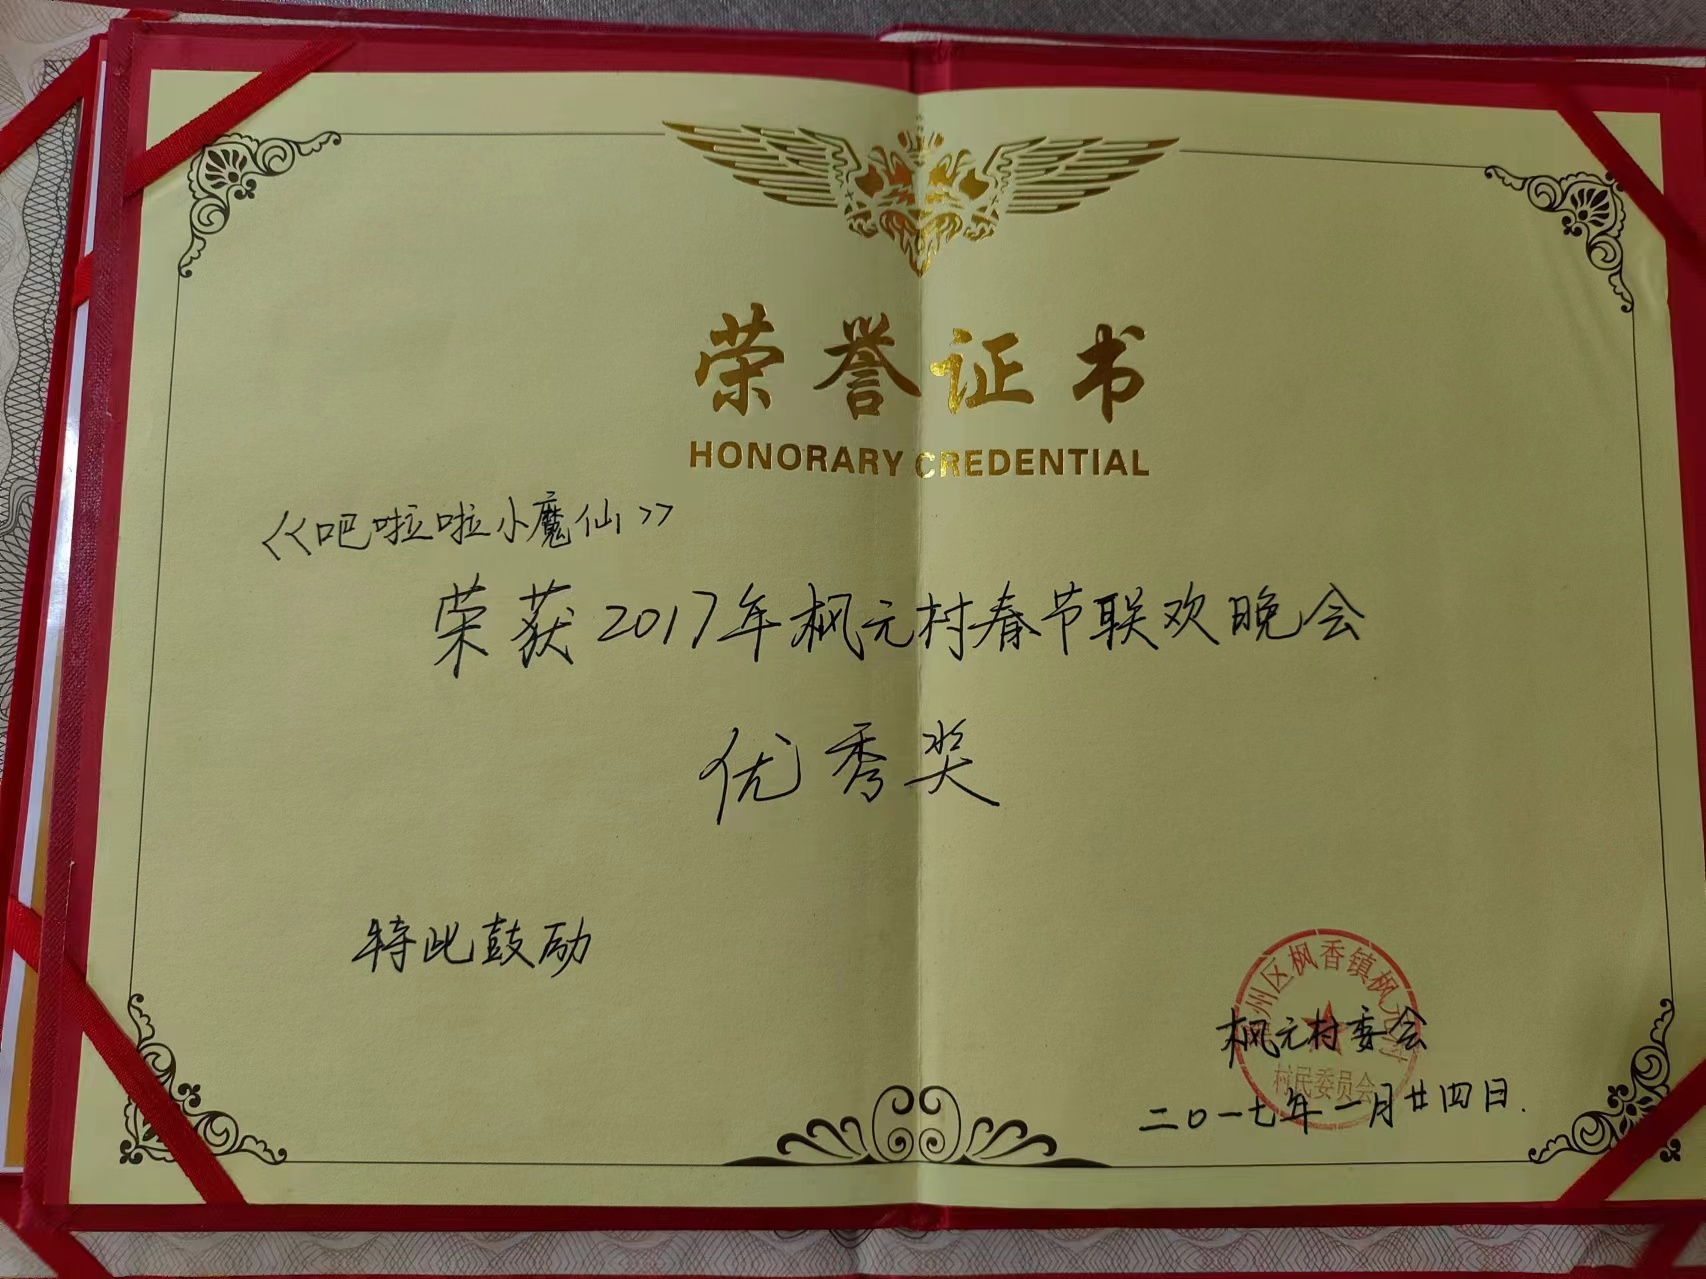 荣誉证书
HONORARY CREDENTIAL
《吧啦啦小魔仙》
荣获2017年枫元村春节联欢晚会
优秀奖
特此鼓励
州区枫香镇枫元
村民委员会
枫元村委会
二〇一七年一月廿四日.